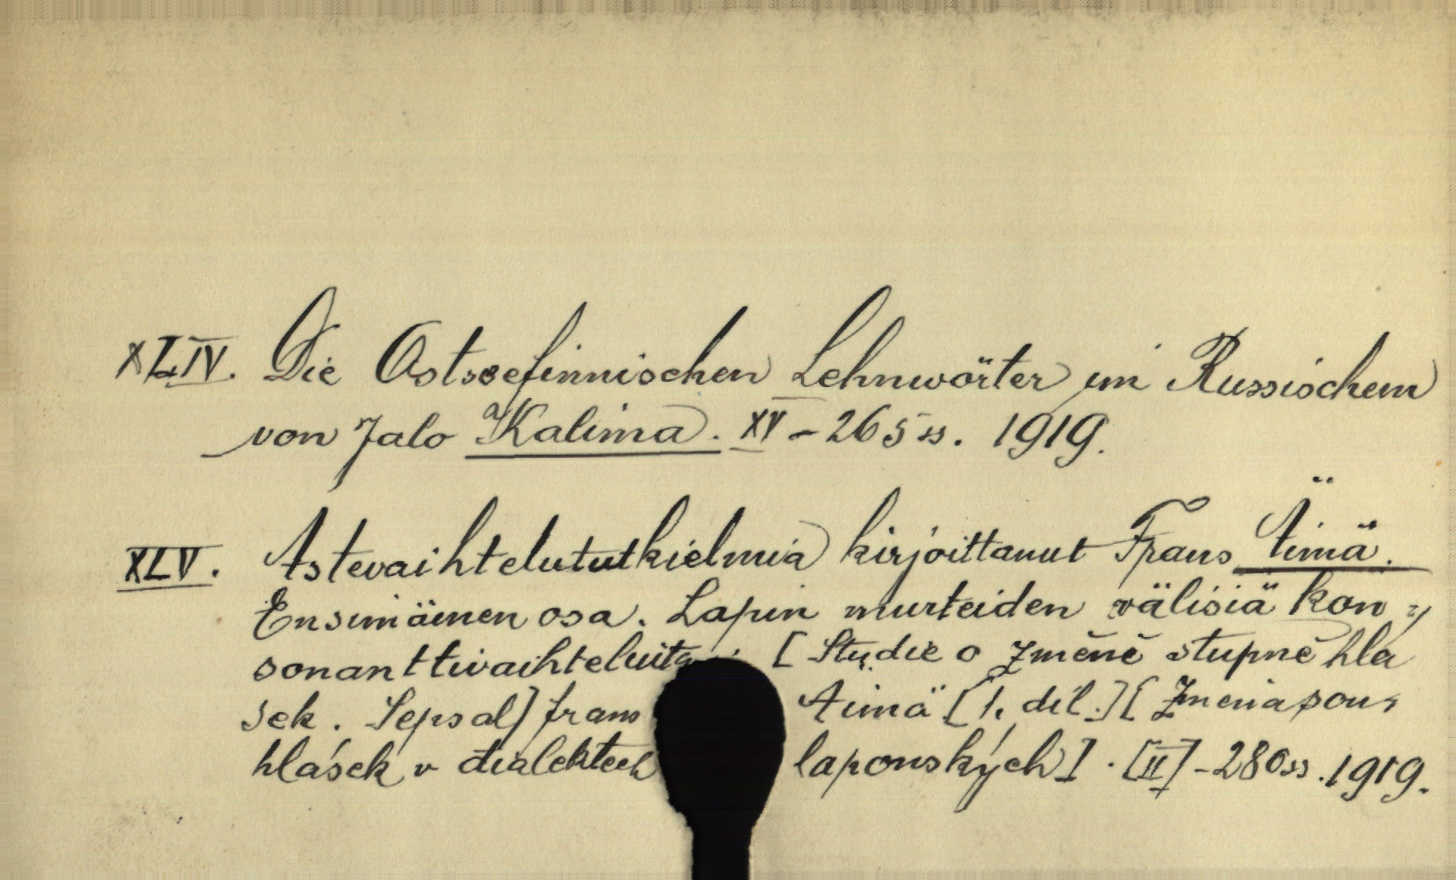 XLIV. Die Ostseefinnischen Lehnwörter im Russischem
von Jalo Kalima. XV - 265 ss. 1919.
XLV. Astevaihtelututkielmia kirjoittanut Frans Äimä.
Ensimäinen osa. Lapin murteiden välisiä kon
sonanttivaihteluita. [Studie o změně stupně hlá
sek. Sepsal] frans Äimä [1. díl.] [Změna sou
hlásek v dialektech laponských]. [II] - 280 ss. 1919.